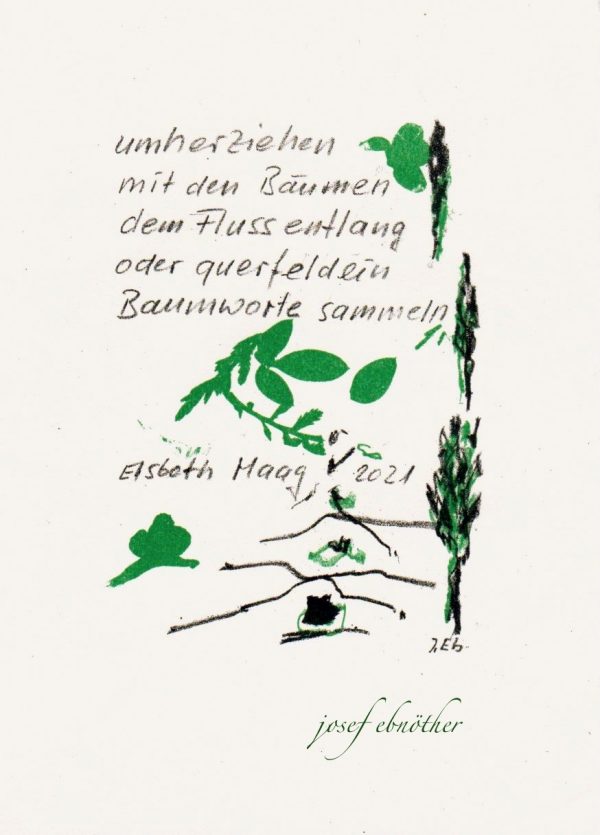 umherziehen
mit den Bäumen
dem Fluss entlang
oder querfeldein
Baumworte sammeln
Elsbeth Maag 2021
J.Eb.
josef ebnöther